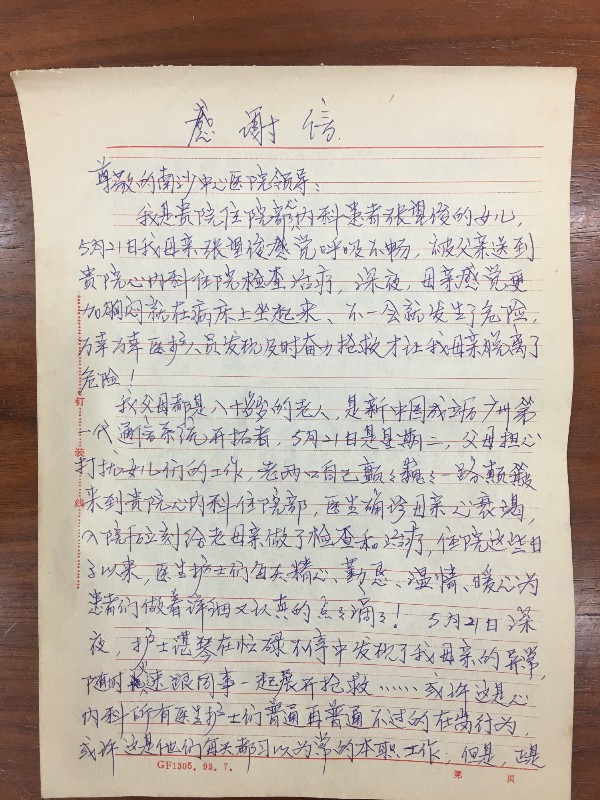 感谢信
尊敬的南沙中心医院领导：
我是贵院住院部心内科患者张望俊的女儿，
5月21日我母亲张望俊感觉呼吸不畅，被父亲送到
贵院心内科住院检查治疗，深夜，母亲感觉更
加胸闷就在病床上坐起来、不一会就发生了危险，
万幸万幸医护人员发现及时奋力抢救才让我母亲脱离了
危险！
我父母都是八十多岁的老人，是新中国成立后广州第
一代通信系统开拓者，5月21日是星期二，父母担心
打扰女儿们的工作，老两口自己颠颠一路颠簸
来到贵院心内科住院部，医生确诊母亲心衰竭，
入院后立刻给老母亲做了检查和治疗，住院这些日
子以来，医生护士们每天精心、勤恳、温情、暖心为
患者们做着详细又认真的点点滴滴！ 5月21日深
夜，护士谌琴在忙碌不停中发现了我母亲的异常，
随时迅速跟同事一起展开抢救……或许这是心
内科所有医生护士们普通再普通不过的在岗行为，
或许这是他们每天都习以为常的本职工作，但是，正是
钉装线
GF1305. 93. 7.
第 页